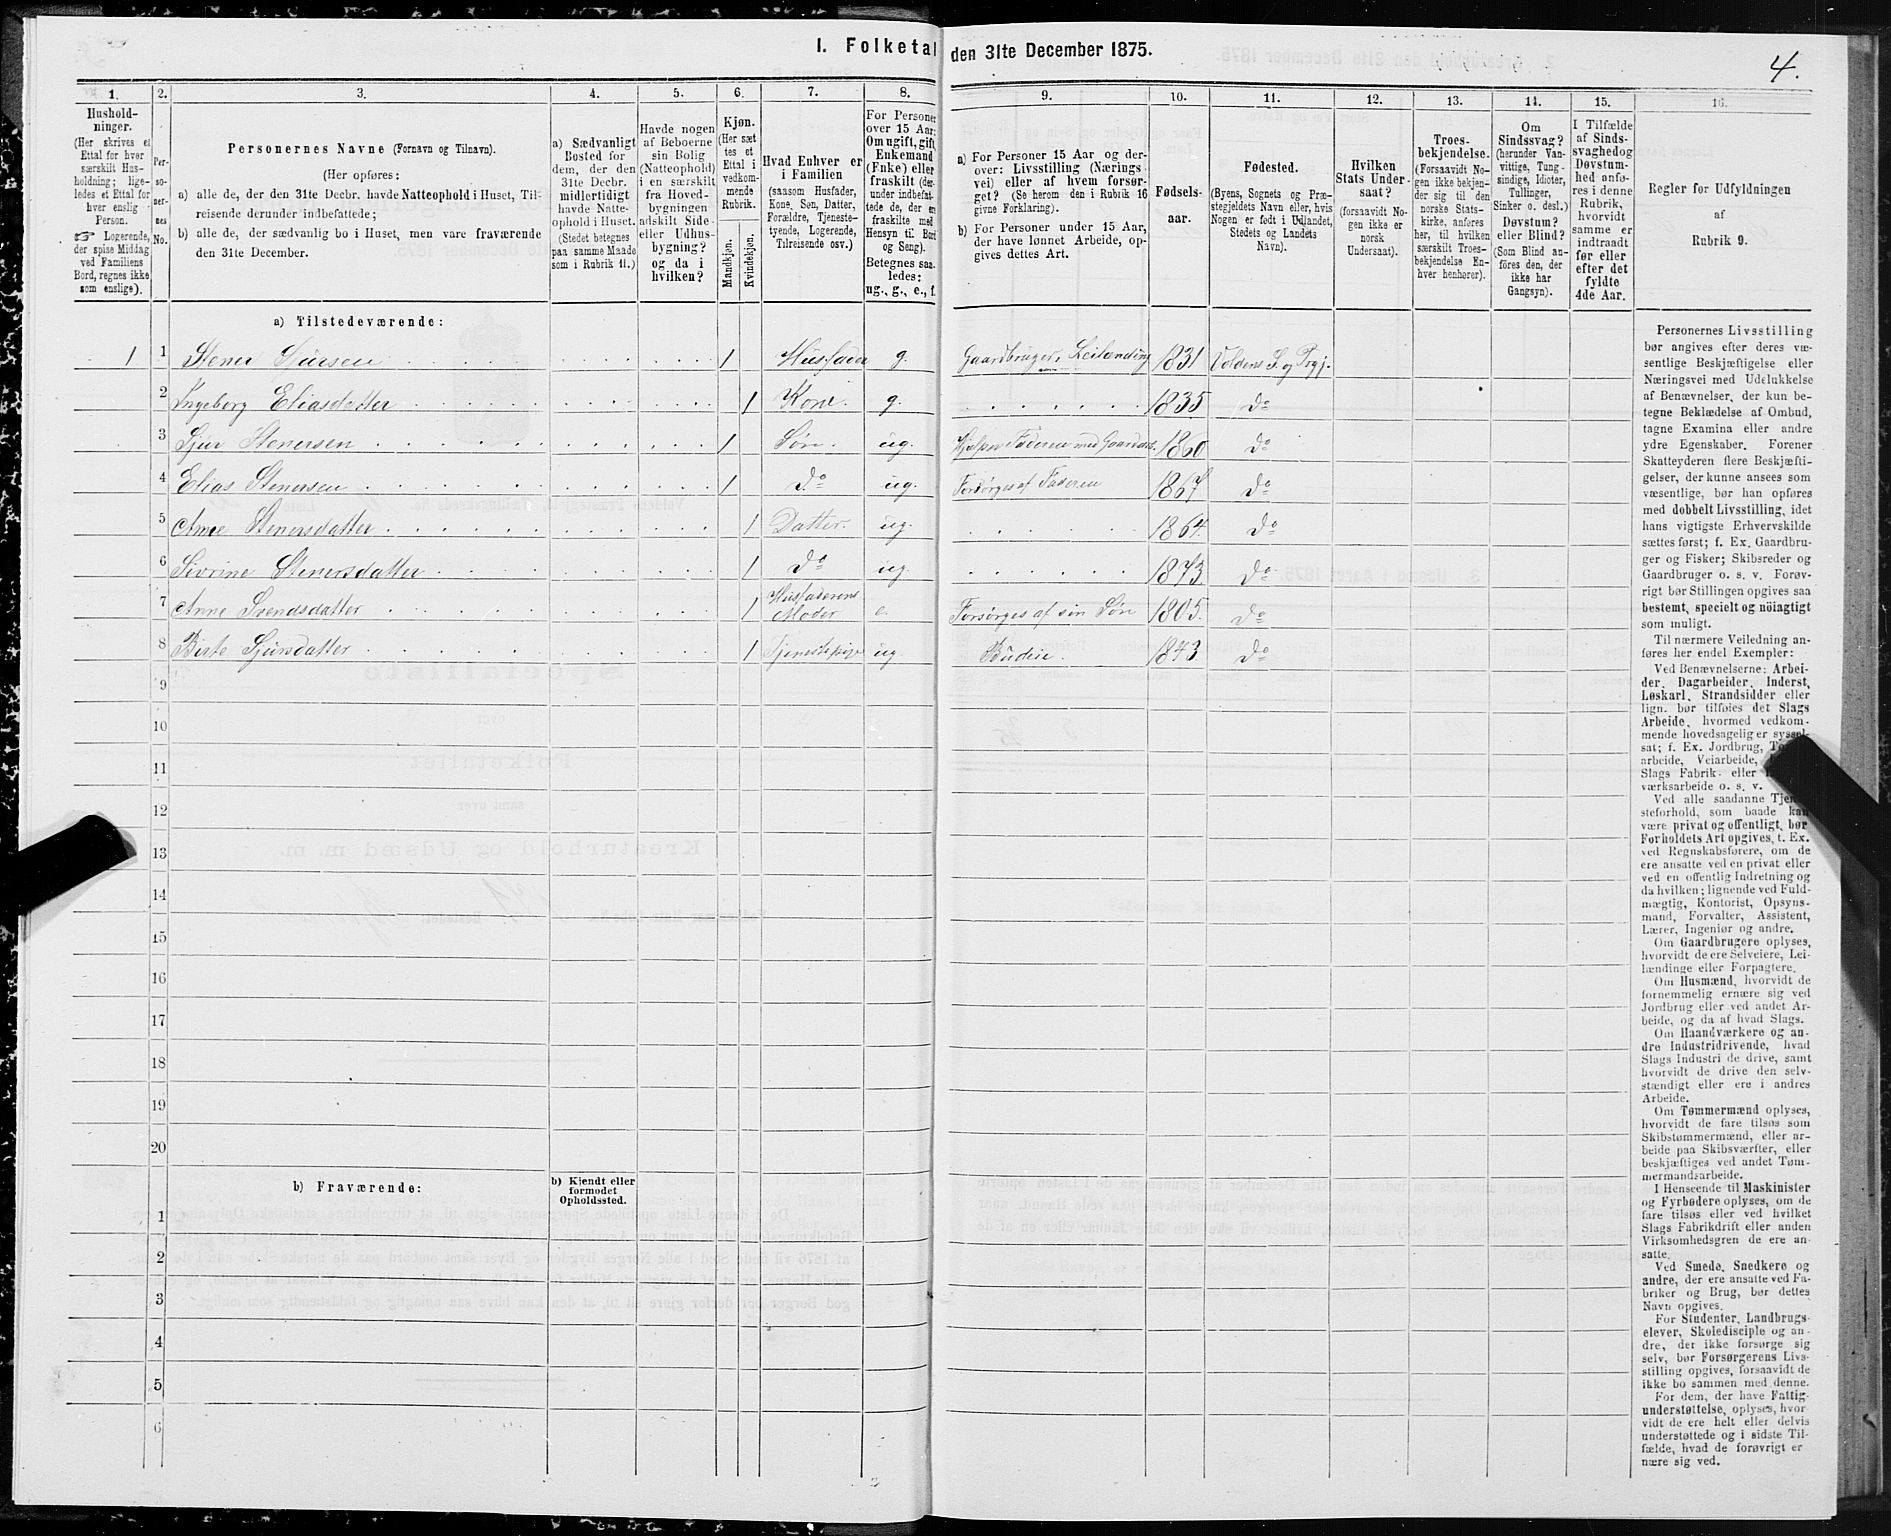 I. Folketal den 31te December 1875.
4.
1. 2. 3. 4. 5. 6. 7. 8. 9. 10. 11. 12. 13. 14. 15. 16.
Hushold-
ninger.
(Her skrives et
Ettal for hver
særskilt Hus-
holdning; lige-
ledes et Ettal for
hver enslig
Person.
☞ Logerende,
der spise Middag
ved Familiens
Bord, regnes ikke
som enslige).
Per-
so-
ner-
nes
No.
Personernes Navne (Fornavn og Tilnavn).
(Her opføres:
a) alle de, der den 31te Decbr. havde Natteophold i Huset, Til-
reisende derunder indbefattede;
b) alle de, der sædvanlig bo i Huset, men vare fraværende
den 31te December.
a) Sædvanligt
Bosted for
dem, der den
31te Decbr.
midlertidigt
havde Natte-
ophold i Huset.
(Stedet betegnes
paa samme Maade
som i Rubrik 11.)
Havde nogen
af Beboerne
sin Bolig
(Natteophold)
i en særskilt
fra Hoved-
bygningen
adskilt Side-
eller Udhus-
bygning?
og da i
hvilken?
Kjøn.
(Her sæt
tes et
Ettal i
vedkom-
mende
Rubrik.
Mandkjøn.
Kvindekjøn.
Hvad Enhver er
i Familien
(saasom Husfader,
Kone, Søn, Datter,
Forældre, Tjeneste-
tyende, Logerende,
Tilreisende osv.)
For Personer
over 15 Aar:
Om ugift, gift,
Enkemand
(Enke) eller
fraskilt (der-
under indbefat-
tede de, der er
fraskilte med
Hensyn til Bord
og Seng).
Betegnes saa-
ledes:
ug., g., e., f.
a) For Personer 15 Aar og der-
over: Livsstilling (Nærings
vei) eller af hvem forsør-
get? (Se herom den i Rubrik 16
givne Forklaring).
b) For Personer under 15 Aar,
der have lønnet Arbeide, op-
gives dettes Art.
Fødsels-
aar.
Fødested.
(Byens, Sognets og Præ-
stegjeldets Navn eller, hvis
Nogen er født i Udlandet,
Stedets og Landets
Navn).
Hvilken
Stats Under-
saat?
(forsaavidt No-
gen ikke er
norsk
Undersaat).
Troes-
bekjendelse.
(Forsaavidt No-
gen ikke bekjen-
der sig til den
norske Stats-
kirke, anføres
her, til hvilken
særskilt Troes-
bekjendelse En-
hver henhører).
Om
Sindssvag?
(herunder Van-
vittige, Tung-
sindige, Idioter,
Tullinger,
Sinker o. desl.)
Døvstum?
eller Blind?
(Som Blind an-
føres den, der
ikke har
Gangsyn).
I Tilfælde
af Sinds-
svaghedog
Døvstum-
hed anfø-
res i denne
Rubrik,
hvorvidt
samme er
indtraadt
før eller
efter det
fyldte
4de Aar.
Regler for Udfyldningen
af
Rubrik 9.
a) Tilstedeværende:
1 1 Stener Sjursen 1 Husfader g. Gaardbruger, Leilending 1831 Voldens S. og Prgj.
2 Ingeborg Eliasdatter 1 Kone. g. 1835 Do
3 Sjur Stenersen 1 Søn. ug. Hjelper Faderen med Gaardarb. 1860 Do
4 Elias Stenersen 1 Do ug. Forsørges af Faderen 1867 Do
5 Anne Stenersdatter 1 Datter. ug. 1864. Do
6 Sivrine Stenersdatter 1 Do ug. 1873. Do
7 Anne Svendsdatter 1 Husfaderens Moder e. Forsørges af sin Søn 1805. Do
8 Birte Sjursdatter 1 Tjenestepige ug. Budeie. 1843 Do
9
10
11
12
13
14
15
16
17
18
19
20
b) Fraværende:
b) Kjendt eller
formodet
Opholdssted.
1
2
3
4
5
6
Personernes Livsstilling
bør angives efter deres væ-
sentlige Beskjæftigelse eller
Næringsvei med Udelukkelse
af Benævnelser, der kun be-
tegne Beklædelse af Ombud,
tagne Examina eller andre
ydre Egenskaber. Forener
Skatteyderen flere Beskjæfti-
gelser, der kunne ansees som
væsentlige, bør han opføres
med dobbelt Livsstilling, idet
hans vigtigste Erhvervskilde
sættes først; f. Ex. Gaardbru-
ger og Fisker; Skibsreder og
Gaardbruger o. s. v. Forøv-
rigt bør Stillingen opgives saa
bestemt, specielt og nöiagtigt
som muligt.
Til nærmere Veiledning an-
føres her endel Exempler:
Ved Benævnelserne: Arbei-
der, Dagarbeider, Inderst,
Løskarl, Strandsidder eller
lign. bør tilføies det Slags
Arbeide, hvormed vedkom-
mende hovedsagelig er syssel-
sat; f. Ex. Jordbrug,
arbeide, Veiarbeide,
Slags Fabrik- eller
værksarbeide o. s. v.
Ved alle saadanne Tjene-
steforhold, som baade kan
være privat og offentligt, bør
Forholdets Art opgives, t. Ex.
ved Regnskabsførere, om de
ere ansatte ved en privat eller
ved en offentlig Indretning og
da hvilken; lignende ved Fuld-
mægtig, Kontorist, Opsyns-
mand, Forvalter, Assistent,
Lærer, Ingeniør og andre.
Om Gaardbrugere oplyses,
hvorvidt de ere Selveiere, Lei-
lændinge eller Forpagtere.
Om Husmænd, hvorvidt de
fornemmelig ernære sig ved
Jordbrug eller ved andet Ar-
beide, og da af hvad Slags.
Om Haandværkere og an-
dre Industridrivende, hvad
Slags Industri de drive, samt
hvorvidt de drive den selv-
stændigt eller ere i andres
Arbeide.
Om Tømmermænd oplyses,
hvorvidt de fare tilsøs som
Skibstømmermænd, eller ar-
beide paa Skibsværfter, eller
beskjæftiges ved andet Tøm-
mermandsarbeide.
I Henseende til Maskinister
og Fyrbødere oplyses, om de
fare tilsøs eller ved hvilket
Slags Fabrikdrift eller anden
Virksomhedsgren de ere an-
satte.
Ved Smede, Snedkere og
andre, der ere ansatte ved Fa-
briker og Brug, bør dettes
Navn opgives.
For Studenter, Landbrugs-
elever, Skoledisciple og an-
dre, der ikke forsørge sig
selv, bør Forsørgerens Livs-
stilling opgives, forsaavidt de
ikke bo sammen med denne.
For dem, der have Fattig-
understøttelse, oplyses, hvor-
vidt de ere helt eller delvis
understøttede og i sidste Til-
fælde, hvad de forøvrigt er
nære sig ved.